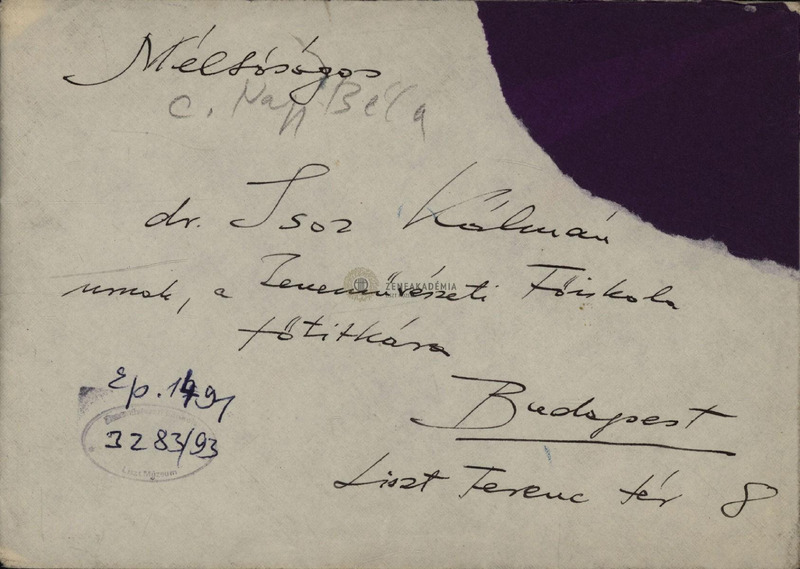 Méltóságos
C. Nagy Béla
dr. Isoz Kálmán
urnak, a Zeneművészeti Főiskola
ZENEAKADÉMIA
főtitkára
Budapest
Liszt Ferenc tér 8
Ep. 1491
3283/93
Liszt Múzeum